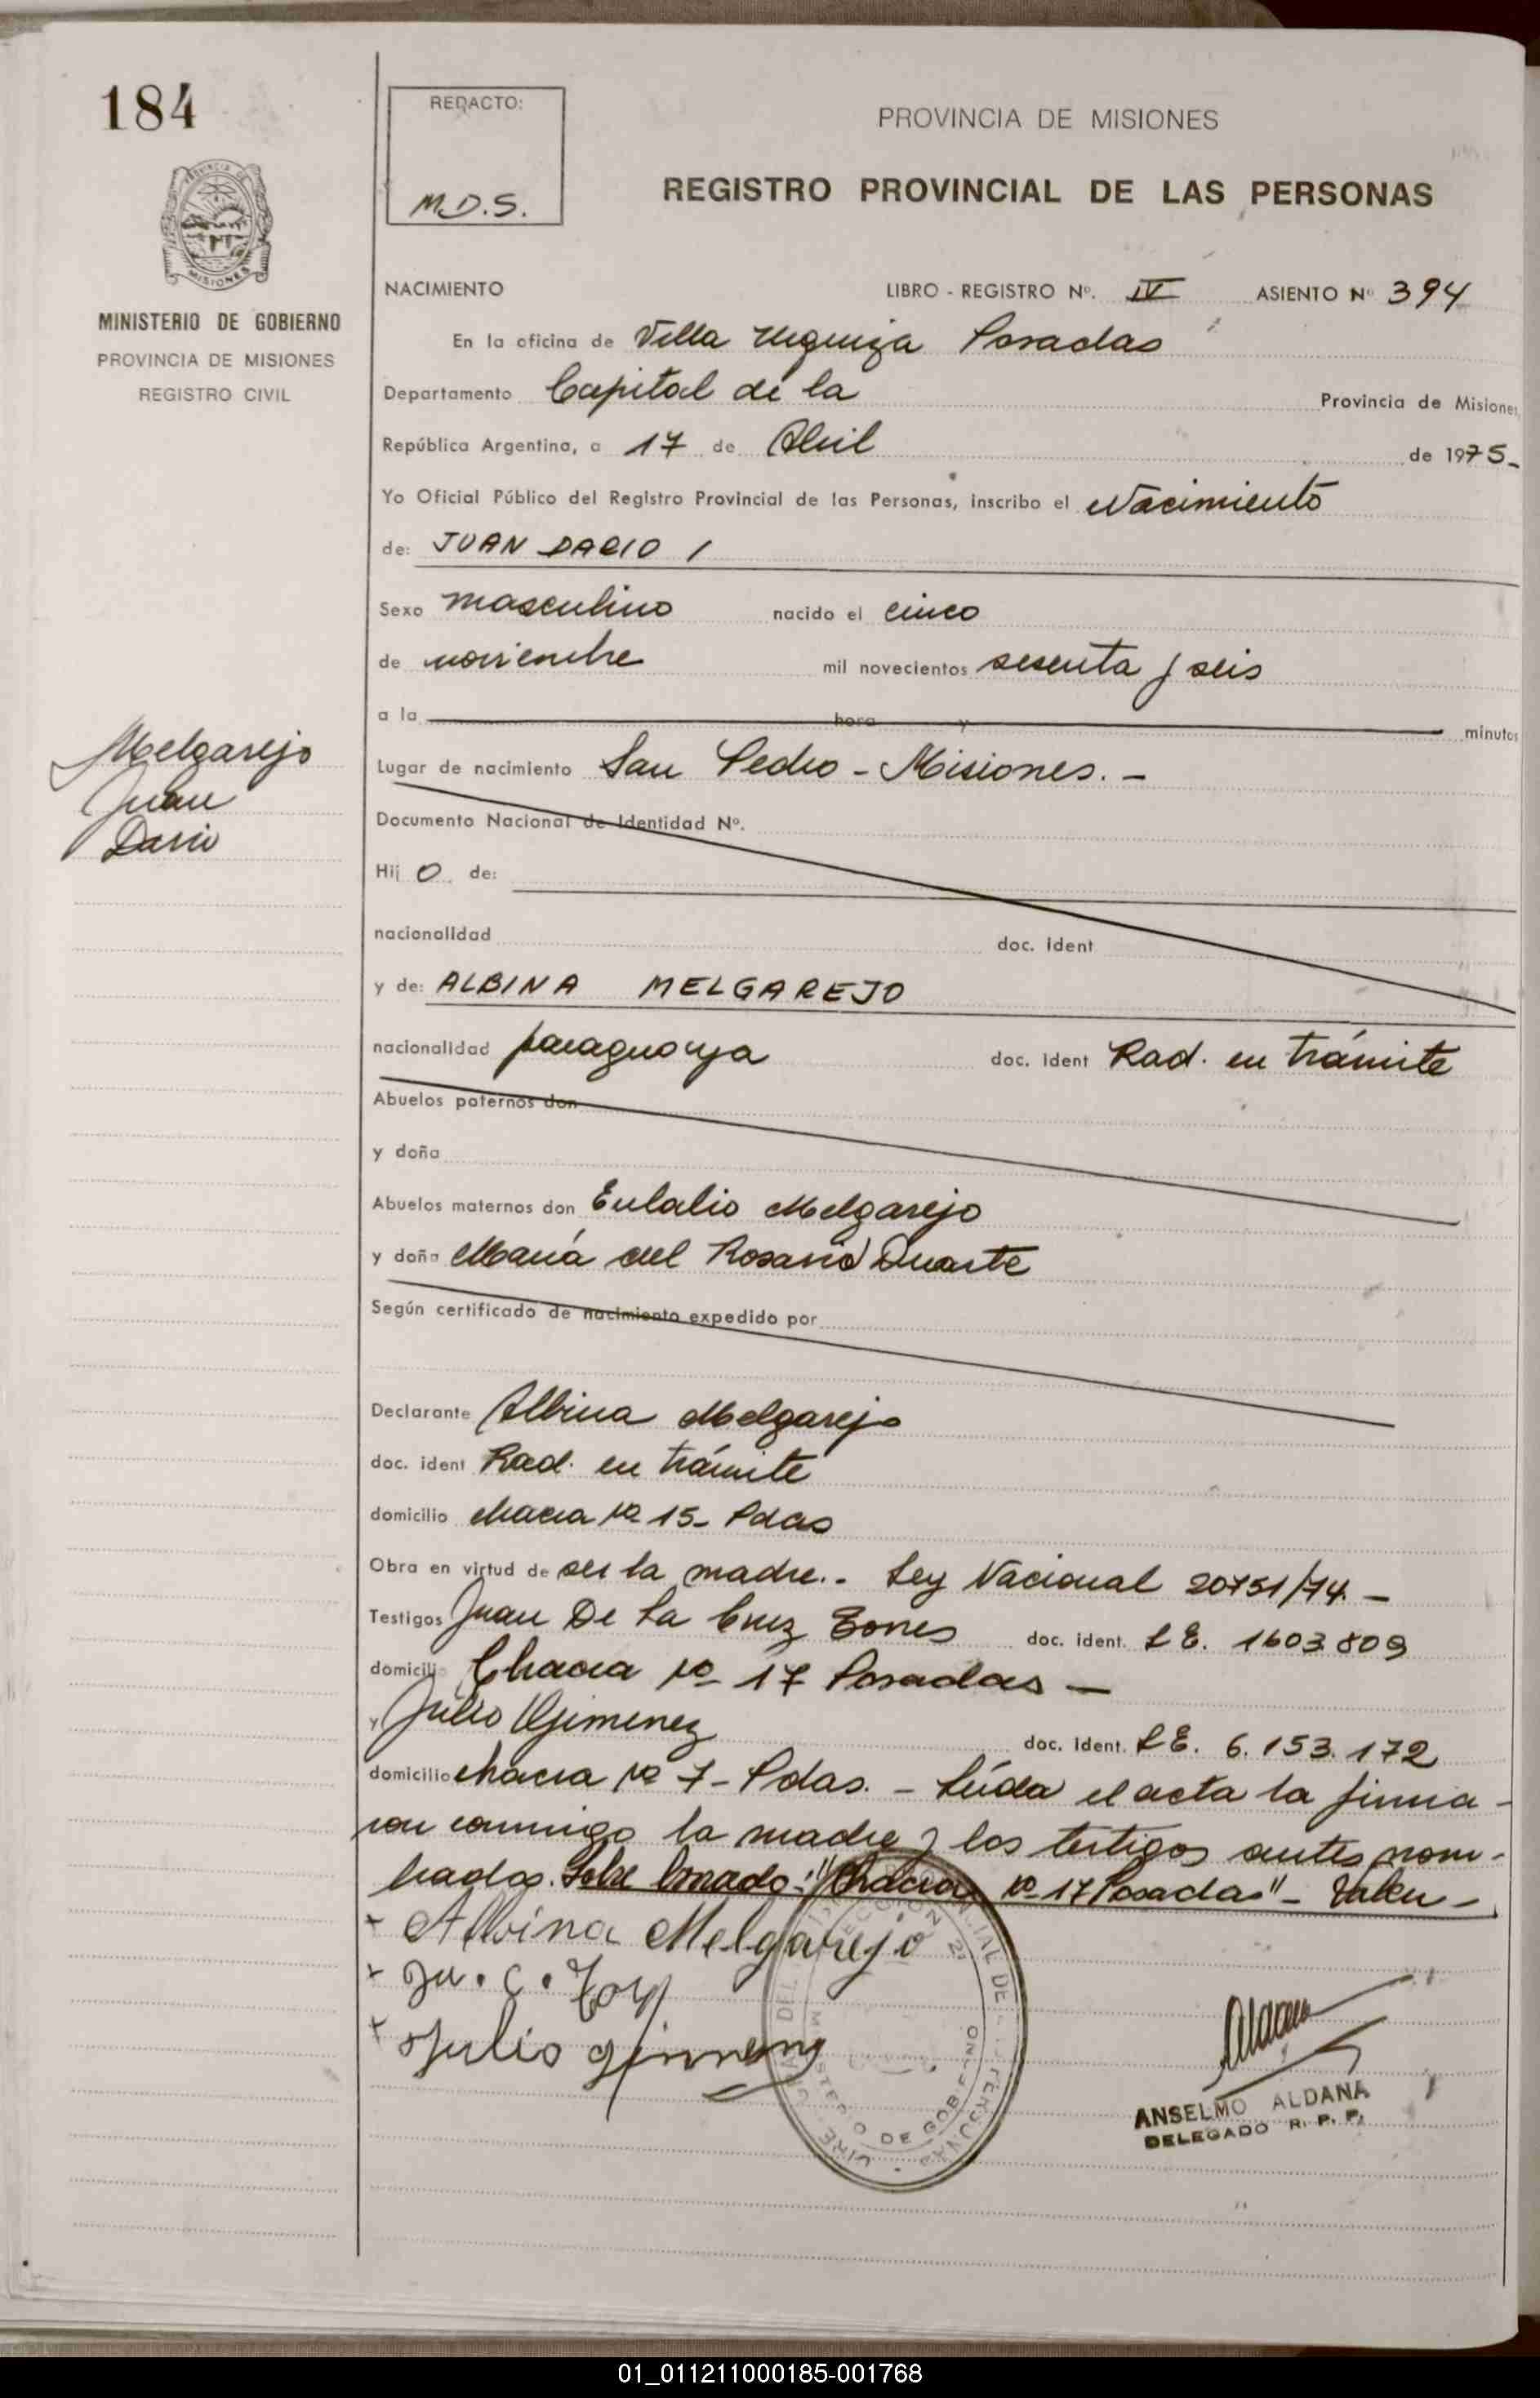 184
REDACTO:
M.D.S.
PROVINCIA DE MISIONES
REGISTRO PROVINCIAL DE LAS PERSONAS
PROVINCIA DE
MISIONES
MINISTERIO DE GOBIERNO
PROVINCIA DE MISIONES
REGISTRO CIVIL
NACIMIENTO LIBRO - REGISTRO Nº. IV ASIENTO Nº 394
En la oficina de Villa Urquiza Posadas
Departamento Capital de la Provincia de Misiones,
República Argentina, a 17 de Abril de 1975-
Yo Oficial Público del Registro Provincial de las Personas, inscribo el Nacimiento
de: JUAN DARIO /
Sexo masculino nacido el cinco
de noviembre mil novecientos sesenta y seis
a la hora y minutos
Melgarejo
Juan
Dario
Lugar de nacimiento San Pedro - Misiones. -
Documento Nacional de Identidad Nº.
Hij o de:
nacionalidad doc. ident
y de: ALBINA MELGAREJO
nacionalidad paraguaya doc. ident Rad. en trámite
Abuelos paternos don
y doña
Abuelos maternos don Eulalio Melgarejo
y doña María del Rosario Duarte
Según certificado de nacimiento expedido por
Declarante Albina Melgarejo
doc. ident Rad. en trámite
domicilio chacra Nº 15- Pdas
Obra en virtud de ser la madre.- Ley Nacional 20751/74. -
Testigos Juan De La Cruz doc. ident. L E. 1603.809
domicilio Chacra Nº 17 Posadas -
y Julio Gimenez doc. ident. L E. 6.153.172
domicilio chacra Nº 7- Pdas. - Leída el acta la firma-
ron conmigo la madre y los testigos antes nom-
brados. Sobre borrado: "Chacra Nº 17 Posadas" - Valen -
x Albina Melgarejo
x Ju. C.
x Julio Gimenez
MINISTERIO DE GOBIERNO
ANSELMO ALDANA
DELEGADO R. P. P.
01_011211000185-001768